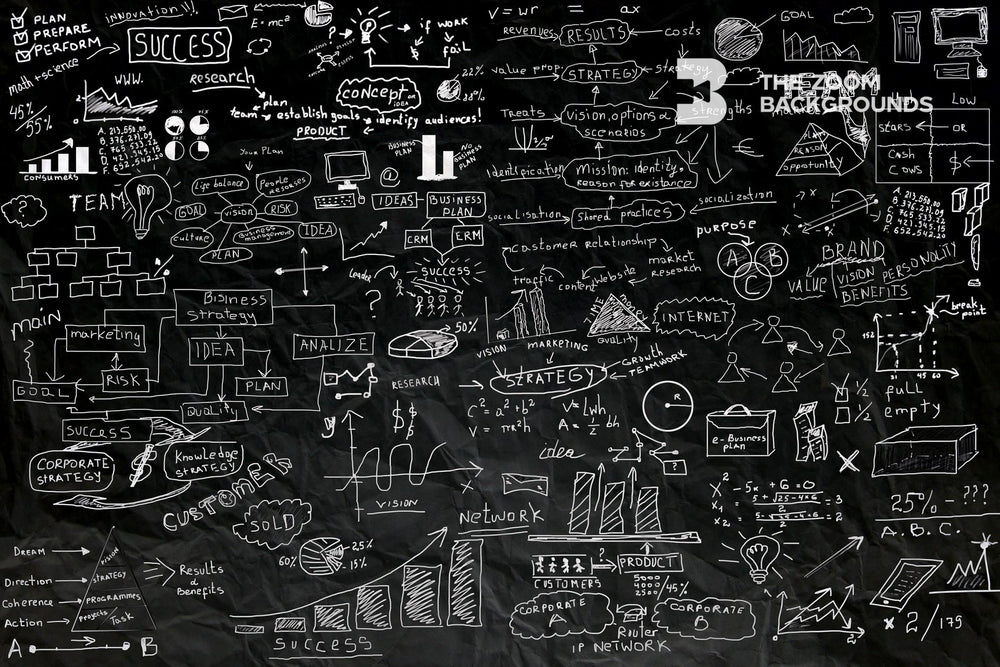 PLAN
PREPARE
PERFORM
math+science
INNOVATION!!!
SUCCESS
E=mc²
?
if WORK
fail
V = wr
= ax
revenues
RESULTS
costs
GOAL
value prop.
STRATEGY
strategy
THE ZOOM
BACKGROUNDS
Low
45%
55%
WWW.
research
plan
team
establish goals
identify audiences!
PRODUCT
concept
IDEA
22%
Treats
Vision, options &
scenarios
strengths
STARS
OR
CASH
COWS
$
A. 213,550.00
B. 376,231.09
C. 765,533.22
D. 421,545.15
F. 652,542.20
CONSUMERS
BUSINESS
PLAN
NO
BUSINESS
PLAN
Mission: identity,
reason for existance
REASON
opportunity
€
Your Plan
Life balance
People
GOAL
vision
RISK
culture
Business
management
IDEA
PLAN
TEAM
?
@
IDEAS
BUSINESS
PLAN
socialisation
Shared practices
socialization
A. 213,550.00
B. 376,231.09
C. 765,533.22
D. 421,545.15
F. 652,542.20
CRM
ERM
Leader
SUCCESS
?
Customer relationship
traffic
content
Website
market
research
purpose
A
B
C
BRAND
VALUE
VISION
BENEFITS
MAIN
Bisiness
strategy
marketing
IDEA
ANALIZE
RISK
PLAN
GOAL
Quality
SUCCESS
50%
VISION
MARKETING
TIME
MONEY
QUALITY
INTERNET
GROWTH
TEAMWORK
STRATEGY
RESEARCH
$$
break
point
152
31
45
60
1/2
1/2
full
empty
C² = a² + b²
V = πR²h
V = Lwh
A = 1/2 bh
R
idea
?
e-Business
plan
CORPORATE
STRATEGY
$
Knowledge
STRATEGY
CUSTOMER
SOLD
y
x
VISION
NETWORK
X² - 5x + 6 = 0
X1 = 5 + √25 - 4×6 / 2 = 3
X2 = 5 - √25 - 4×6 / 2 = 2
25% - ???
A.B.C.
DREAM
Direction
Coherence
Action
VISION
STRATEGY
PROGRAMMES
Projects
Task
Results
&
Benefits
A
B
60%
25%
15%
SUCCESS
CUSTOMERS
?
PRODUCT
5000
4000
2500
45%
CORPORATE
A
CORPORATE
B
Router
IP NETWORK
x 2/175